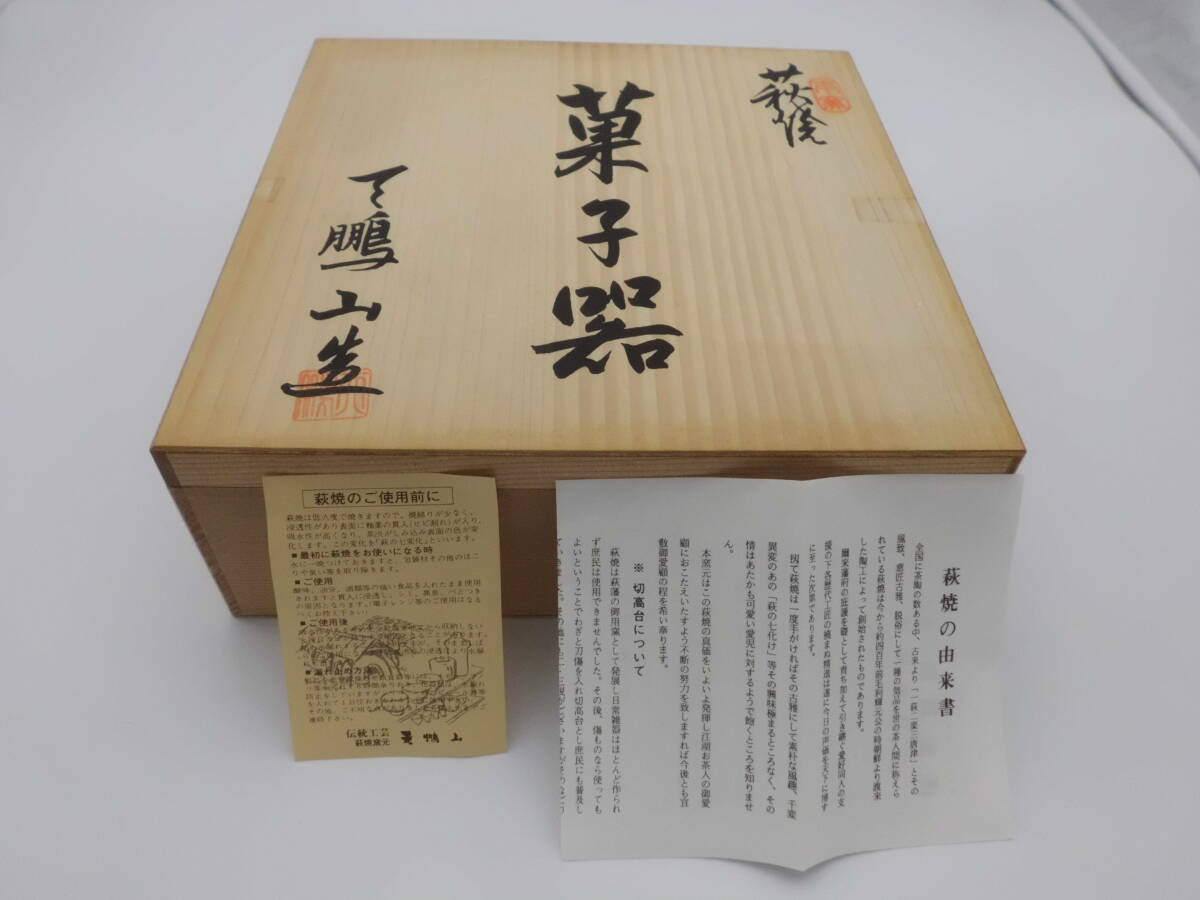 萩焼
菓子器
天鵬山造
萩焼のご使用前に
萩焼は低火度で焼きますので、焼締りが少なく、
浸透性があり表面に釉薬の貫入(ヒビ割れ)が入り、
吸水性が高くなり、茶渋がしみ込み表面の色が変
化します。この変化を「萩の七変化」といいます。
■最初に萩焼をお使いになる時
水に一晩つけておきますと、
■ご使用
酸味、油分、酒類等の強い食品を入れたまま使用
されますと貫入に浸透し、シミ、異臭、べとつき
の原因となります。電子レンジ等のご使用はなる
べくお控え下さい。
■ご使用後
連絡下さい。
伝統工芸
萩焼窯元 天鵬山
萩焼の由来書
全国に茶陶の数ある中、古来より「一萩二楽三唐津」とその
風致、意匠古雅、脱俗にして一種の気品を世の茶人間に称えら
れている萩焼は今から約四百年前毛利輝元公の時朝鮮より渡来
した陶工によって創始されたものであります。
爾来藩府の庇護を礎として育ち加えて引き継ぐ愛好同人の支
援の下各歴代工匠の撓まぬ精進は遂に今日の声価を天下に博す
に至った次第であります。
扨て萩焼は一度手がければその古雅にして素朴な風趣、千変
異変のあの「萩の七化け」等その興味極まるところなく、その
情はあたかも可愛い愛児に対するようで飽くところを知りませ
ん。
本窯元はこの萩焼の真価をいよいよ発揮し江湖お茶人の御愛
顧におこたえいたすよう不断の努力を致しますれば今後とも宜
敷御愛顧の程を希い奉ります。
※ 切高台について
萩焼は萩藩の御用窯として発展し日常雑器はほとんど作られ
ず庶民は使用できませんでした。その後、傷ものなら使っても
よいということでわざと刀傷を入れ切高台とし庶民にも普及し